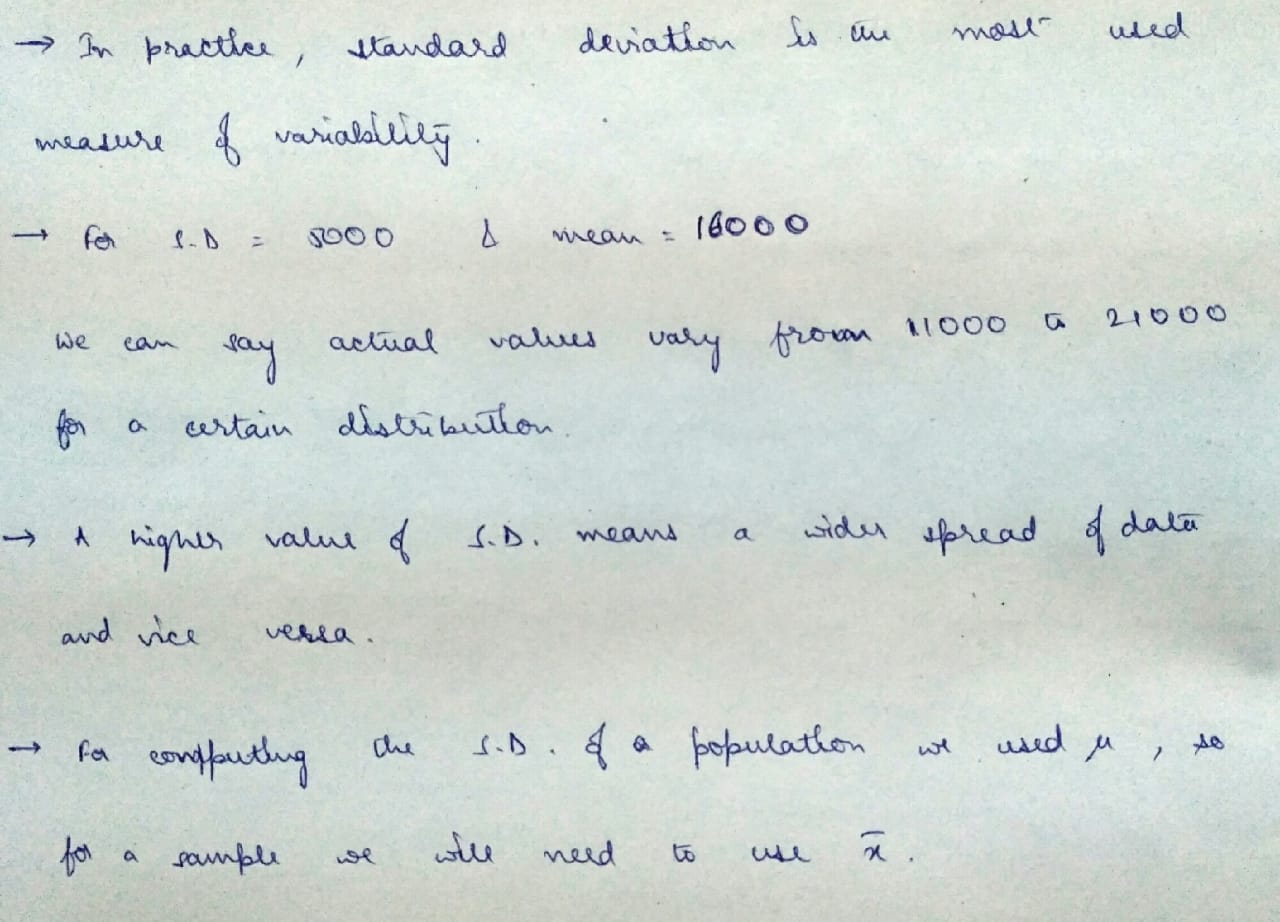 → In practice, standard deviation is the most used
measure of variability.
→ For S.D = 5000 & mean = 16000
We can say actual values vary from 11000 to 21000
for a certain distribution.
→ A higher value of S.D. means a wider spread of data
and vice versa.
→ For computing the S.D. of a population we used μ, so
for a sample we will need to use x̄.